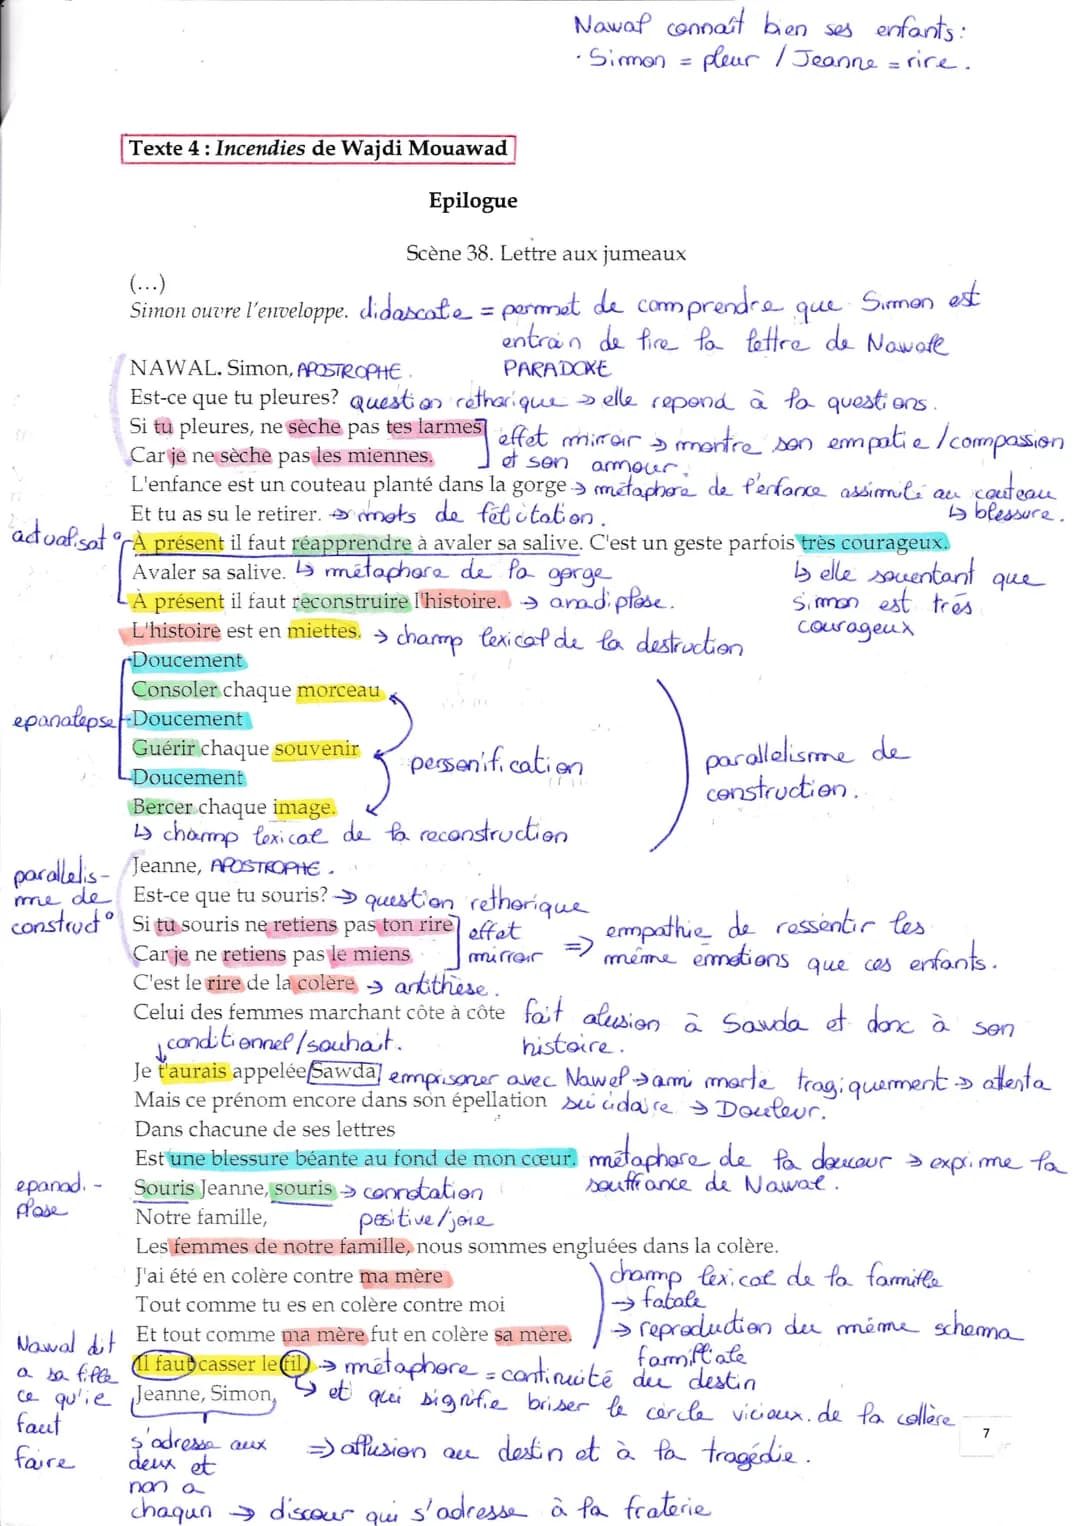 Nawal connaît bien ses enfants:
· Simon = pleur / Jeanne = rire.
Texte 4 : Incendies de Wajdi Mouawad
Epilogue
Scène 38. Lettre aux jumeaux
(...)
Simon ouvre l'enveloppe. didascalie = permet de comprendre que Simon est
entrain de lire la lettre de Nawale
NAWAL. Simon, APOSTROPHE. PARADOXE
Est-ce que tu pleures? question rethorique → elle repond à la questions.
Si tu pleures, ne sèche pas tes larmes effet mirroir → montre son empatie/compassion
Car je ne sèche pas les miennes. et son amour.
L'enfance est un couteau planté dans la gorge → métaphore de l'enfance assimilé au couteau
Et tu as su le retirer. → mots de félicitation. ↳ blessure.
actualisat° À présent il faut réapprendre à avaler sa salive. C'est un geste parfois très courageux.
Avaler sa salive. ↳ métaphore de la gorge ↳ elle souentant que
À présent il faut reconstruire l'histoire. → anadiplose. Simon est très
L'histoire est en miettes. → champ lexical de la destruction courageux
Doucement
Consoler chaque morceau
epanalepse Doucement
Guérir chaque souvenir personification parallelisme de
Doucement construction.
Bercer chaque image.
↳ champ lexical de la reconstruction
parallelis- Jeanne, APOSTROPHE.
me de Est-ce que tu souris? → question rethorique
construct° Si tu souris ne retiens pas ton rire effet ⇒ empathie de ressentir les
Car je ne retiens pas le miens mirroir même émotions que ces enfants.
C'est le rire de la colère → antithèse.
Celui des femmes marchant côte à côte fait alusion à Sawda et donc à son
conditionnel/souhait. histoire.
Je t'aurais appelée Sawda emprisoner avec Nawel → ami morte tragiquement → attenta
Mais ce prénom encore dans son épellation suicidaire → Douleur.
Dans chacune de ses lettres
Est une blessure béante au fond de mon cœur. métaphore de la douceur → exprime la
epanadi- Souris Jeanne, souris → connotation souffrance de Nawal.
plose Notre famille, positive/joie
Les femmes de notre famille, nous sommes engluées dans la colère.
J'ai été en colère contre ma mère champ lexical de la famille
Tout comme tu es en colère contre moi → fatale
Et tout comme ma mère fut en colère sa mère. → reproduction du même schema
familiale
Nawal dit Il faut casser le fil, → métaphore = continuité du destin
a sa fille Jeanne, Simon, ↳ et qui signifie briser le cercle vicioux de la collère
ce qu'ie
faut
faire
s'adresse aux ⇒ allusion au destin et à la tragédie.
deux et
non a
chaqun → discour qui s'adresse à la fraterie
7